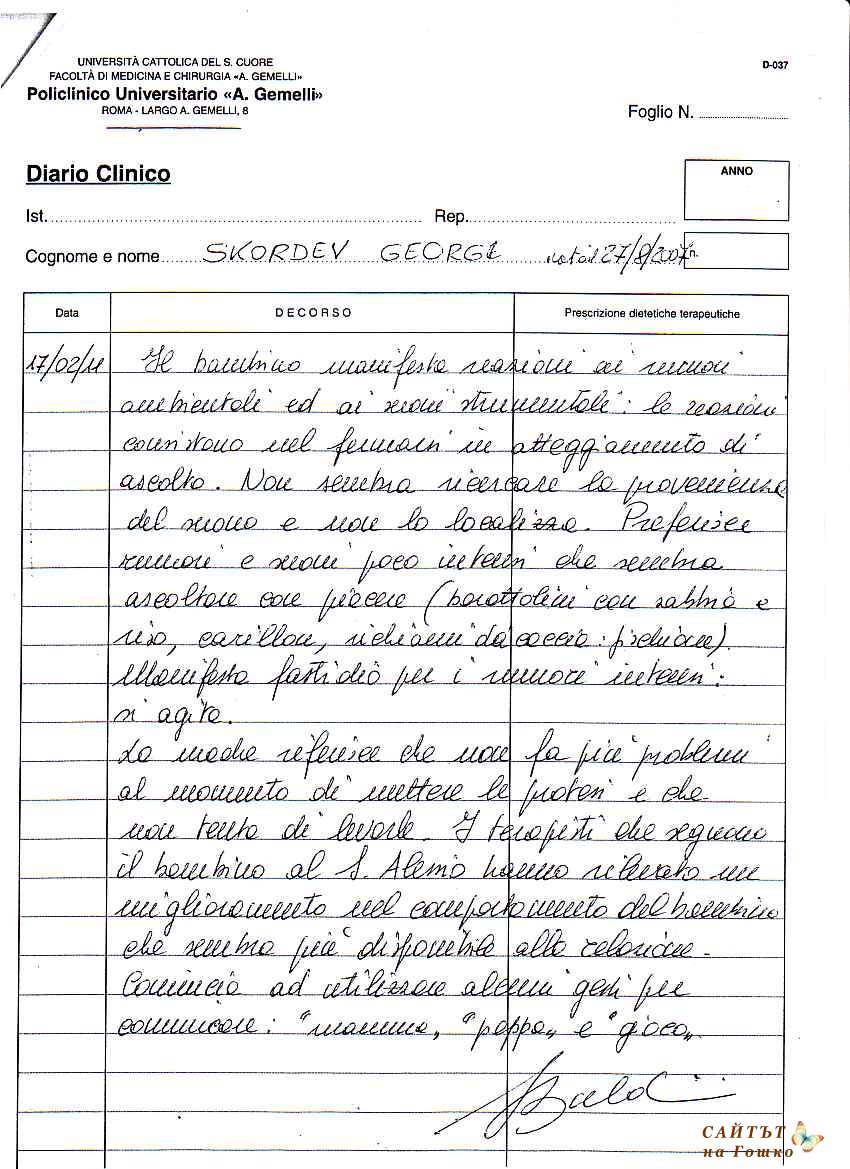 UNIVERSITÀ CATTOLICA DEL S. CUORE
FACOLTÀ DI MEDICINA E CHIRURGIA «A. GEMELLI»
Policlinico Universitario «A. Gemelli»
ROMA - LARGO A. GEMELLI, 8
D-037
Foglio N.
Diario Clinico
ANNO
Ist. Rep.
Cognome e nome SKORDEV GEORGI 27/8/2007 n.
Data DECORSO Prescrizione dietetiche terapeutiche
17/02/11 Il bambino manifesta reazioni ai rumori
ambientali ed ai suoni strumentali: le reazioni
consistono nel fermarsi in atteggiamento di
ascolto. Non sembra ricercare la provenienza
del suono e non lo localizza. Preferisce
rumori e suoni poco intensi che sembra
ascoltare con piacere (barattolini con sabbia e
riso, carillon, richiami da caccia: piccione).
Manifesta fastidio per i rumori intensi:
si agita.
La madre riferisce che non fa più problemi
al momento di mettere le protesi e che
non tenta di levarle. I terapisti che seguono
il bambino al S. Alessio hanno rilevato un
miglioramento nel comportamento del bambino
che sembra più disponibile alla relazione.
Comincia ad utilizzare alcuni gesti per
comunicare: "mamma", "pappa" e "gioco"
САЙТЪТ
на Гошко